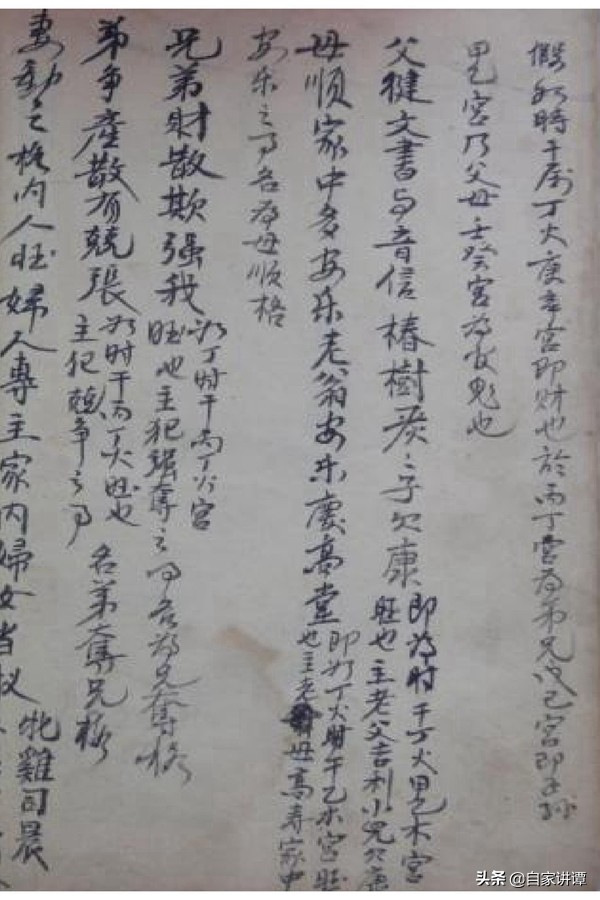 假如時干屬丁火庚辛宮即財也於丙丁宮為弟兄戊己宮即子孫
甲乙宮乃父母壬癸宮為官鬼也
父健文書与音信椿樹茂之子欠康
即如时干丁火甲乙木宮
旺也主老父吉利小兒欠康
母順家中多安乐老翁安乐慶高堂
即如丁火时干乙木宮旺
也主老母高寿家中
安乐之事名為母順格
兄弟財散欺强我
如丁时干丙丁火宮
旺也主犯强奪之事名為兄奪格
弟争產散須兢張
如时干丙丁火旺也
主犯兢争之事
名弟奪兄格
妻動之格內人旺婦人專主家內婦女当权
牝雞司晨
头条 @自家讲谭